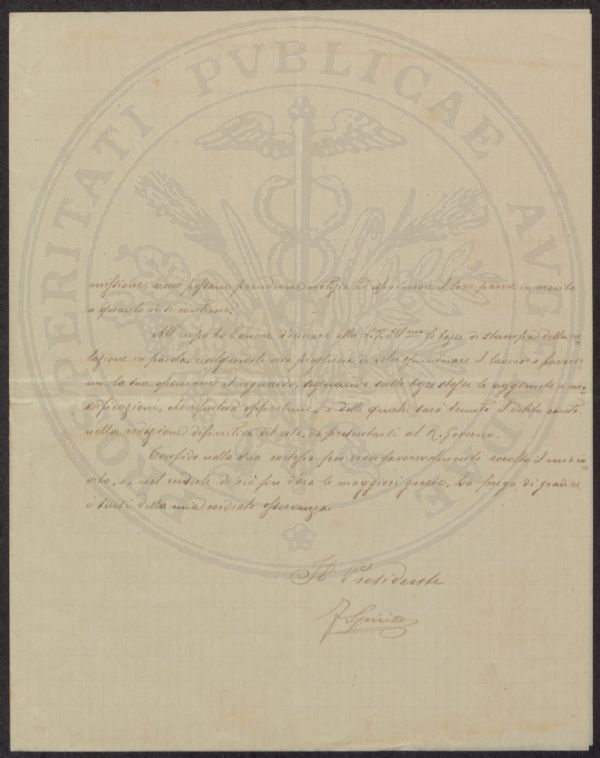 PROSPERITATI PVBLICAE AVGENDAE
missione, acciò possano prenderne notizia ed esprimere il loro parere in merito
a quanto vi si contiene.
All'uopo ho l'onore d'inviare alla S.V. Ill.ma le bozze di stampa della re-
lazione in parola, volgendole viva preghiera di voler esaminare il lavoro e favorir-
mi la sua opinione al riguardo, segnando sulle bozze stesse le aggiunte e mo-
dificazioni, che riputerà opportune, e delle quali sarà tenuto il debito conto
nella redazione definitiva del voto, da presentarsi al R. Governo.
Confido nella sua cortesia per veder favorevolmente accolto il mio in-
vito, e, nel mentre di ciò fin d'ora le maggiori grazie, La prego di gradire
i sensi della mia cordiale osservanza.
Il Presidente